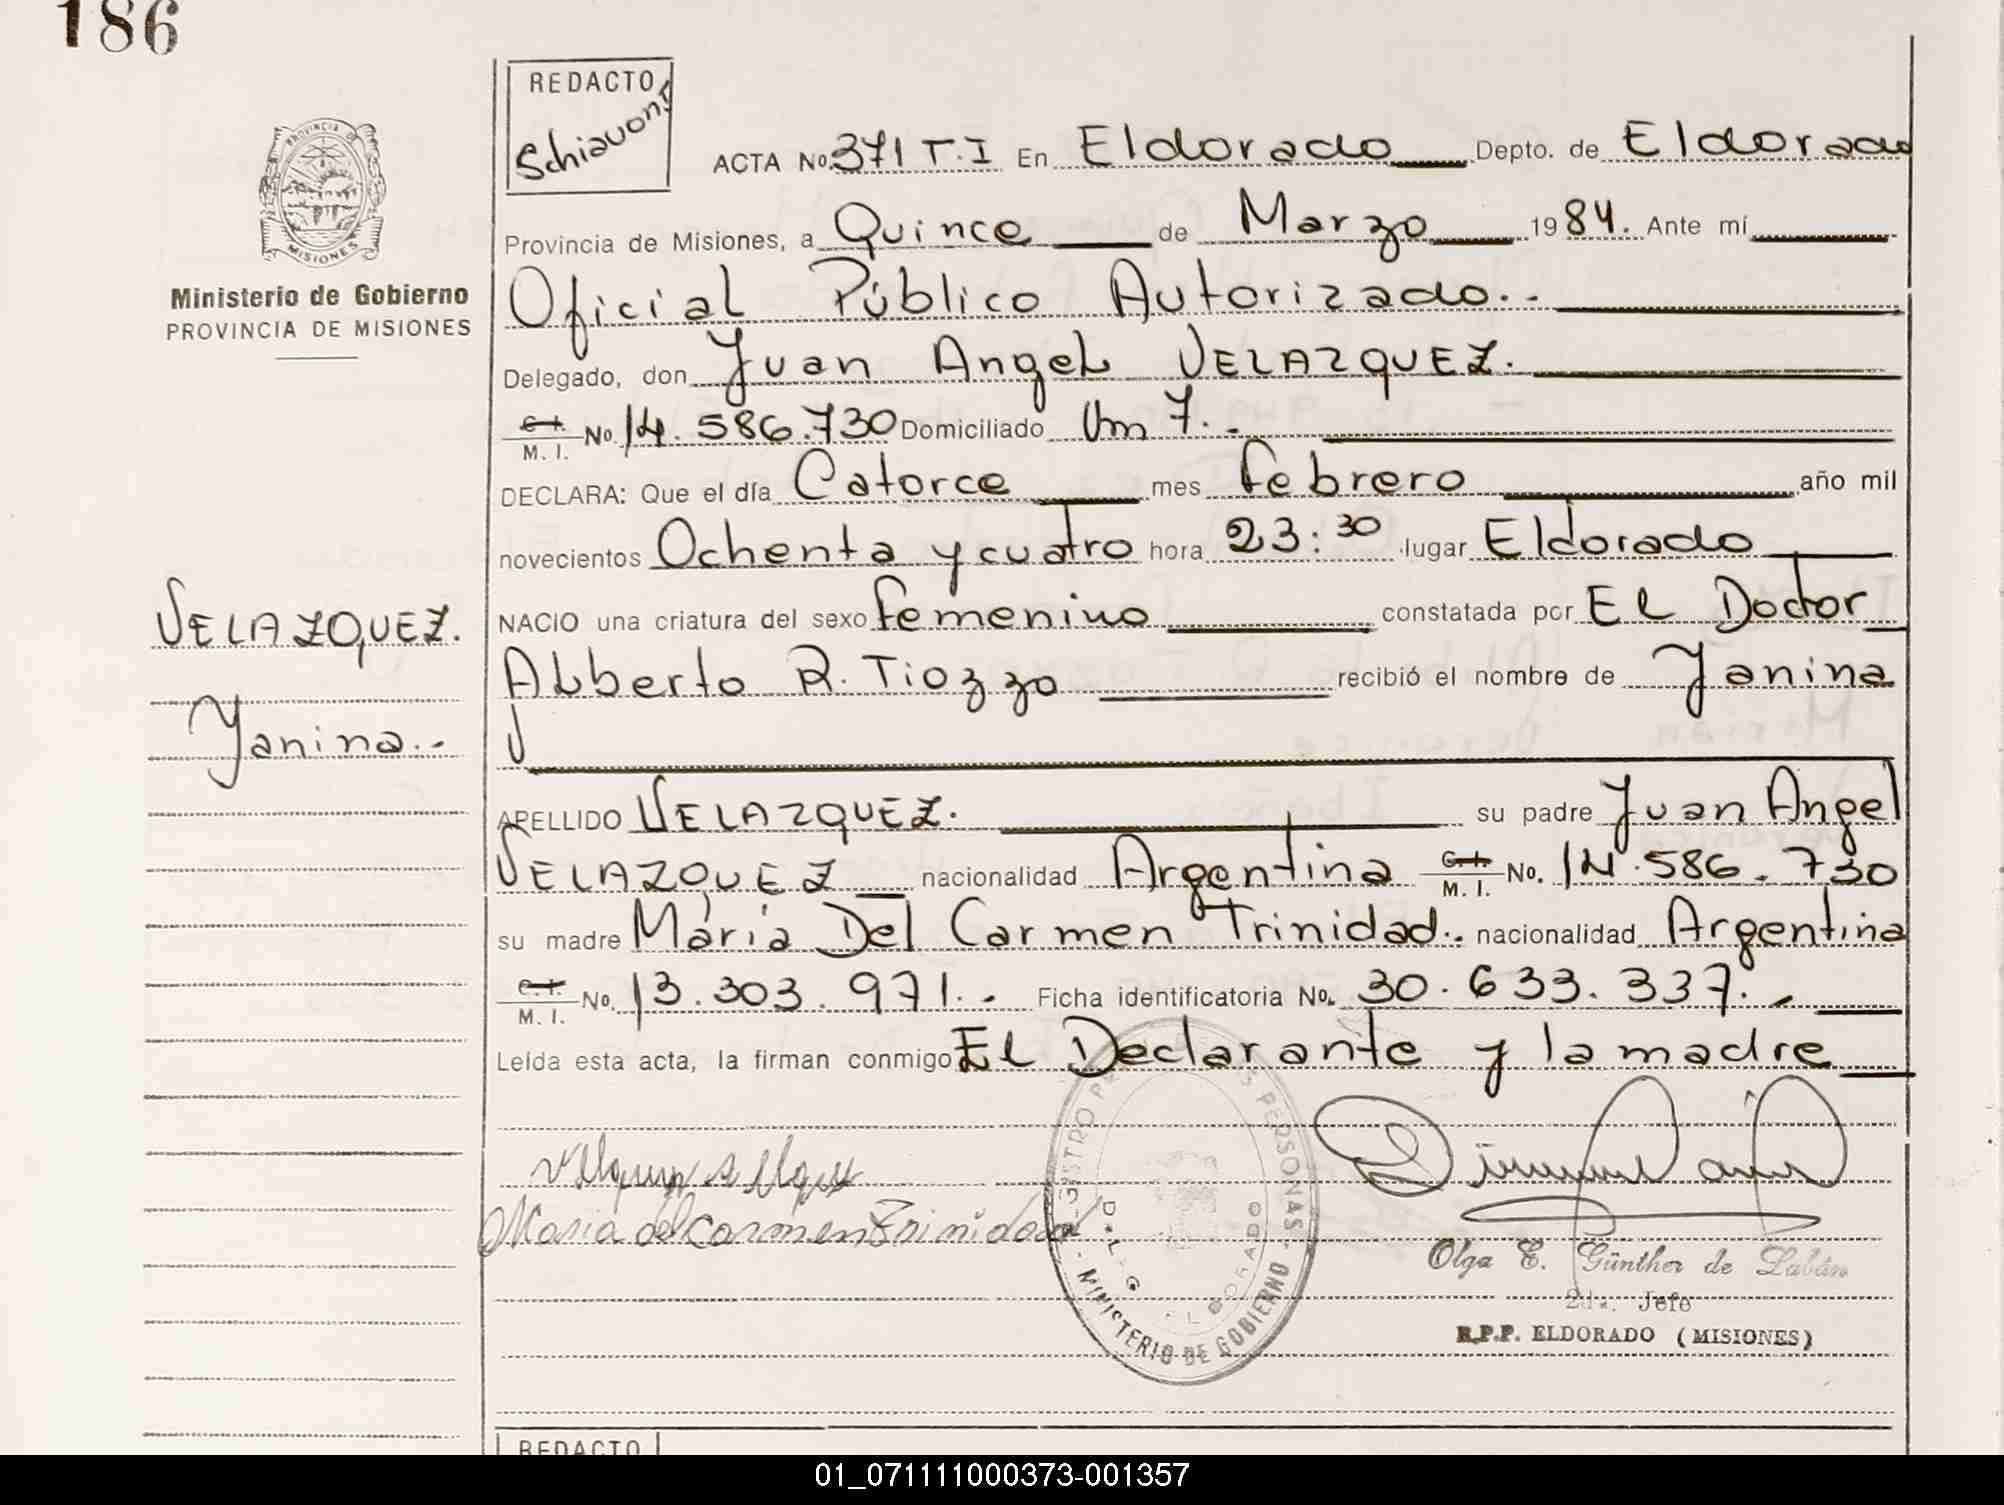 186
REDACTO
Schiavoni
ACTA No. 371 T.I En Eldorado Depto. de Eldorado
Provincia de Misiones, a Quince de Marzo 1984. Ante mí
Ministerio de Gobierno
PROVINCIA DE MISIONES
PROVINCIA DE
MISIONES
Oficial Público Autorizado.-
Delegado, don Juan Angel VELAZQUEZ.
C. I.
M. I. No. 14.586.730 Domiciliado Km 7.-
DECLARA: Que el día Catorce mes febrero año mil
novecientos Ochenta y cuatro hora 23:30 lugar Eldorado
VELAZQUEZ.
Yanina.-
NACIO una criatura del sexo femenino constatada por El Doctor
Alberto R. Tiozzo recibió el nombre de Yanina
APELLIDO VELAZQUEZ. su padre Juan Angel
VELAZQUEZ nacionalidad Argentina C. I. M. I. No. 14.586.730
su madre Maria Del Carmen Trinidad.. nacionalidad Argentina
C. I.
M. I. No. 13.303.971.- Ficha identificatoria No. 30.633.337.-
Leída esta acta, la firman conmigo El Declarante y la madre
Maria del Carmen Trinidad
PERSONAS
DELEG ELDORADO
MINISTERIO DE GOBIERNO
Olga E. Günther de Labán
2da. Jefe
R.P.P. ELDORADO (MISIONES)
REDACTO
01_071111000373-001357